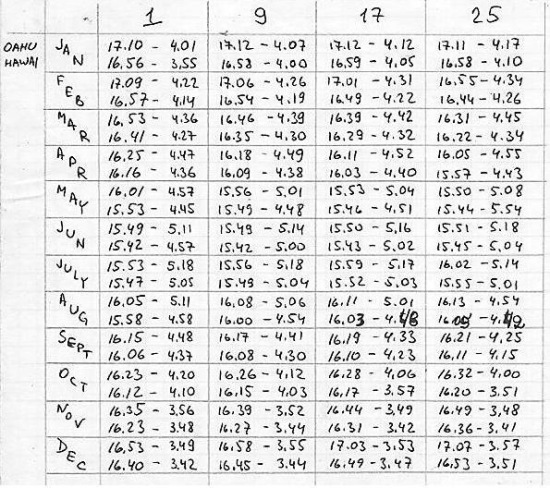 1 9 17 25
OAHU JAN 17.10 - 4.01 17.12 - 4.07 17.12 - 4.12 17.11 - 4.17
HAWAI 16.56 - 3.55 16.58 - 4.00 16.59 - 4.05 16.58 - 4.10
FEB 17.09 - 4.22 17.06 - 4.26 17.01 - 4.31 16.55 - 4.34
16.57 - 4.14 16.54 - 4.19 16.49 - 4.22 16.44 - 4.26
MAR 16.53 - 4.36 16.46 - 4.39 16.39 - 4.42 16.31 - 4.45
16.41 - 4.27 16.35 - 4.30 16.29 - 4.32 16.22 - 4.34
APR 16.25 - 4.47 16.18 - 4.49 16.11 - 4.52 16.05 - 4.55
16.16 - 4.36 16.09 - 4.38 16.03 - 4.40 15.57 - 4.43
MAY 16.01 - 4.57 15.56 - 5.01 15.53 - 5.04 15.50 - 5.08
15.53 - 4.45 15.49 - 4.48 15.46 - 4.51 15.44 - 5.54
JUN 15.49 - 5.11 15.49 - 5.14 15.50 - 5.16 15.51 - 5.18
15.42 - 4.57 15.42 - 5.00 15.43 - 5.02 15.45 - 5.04
JULY 15.53 - 5.18 15.56 - 5.18 15.59 - 5.17 16.02 - 5.14
15.47 - 5.05 15.49 - 5.04 15.52 - 5.03 15.55 - 5.01
AUG 16.05 - 5.11 16.08 - 5.06 16.11 - 5.01 16.13 - 4.54
15.58 - 4.58 16.00 - 4.54 16.03 -
SEPT 16.15 - 4.48 16.17 - 4.41 16.19 - 4.33 16.21 - 4.25
16.06 - 4.37 16.08 - 4.30 16.10 - 4.23 16.11 - 4.15
OCT 16.23 - 4.20 16.26 - 4.12 16.28 - 4.06 16.32 - 4.00
16.12 - 4.10 16.15 - 4.03 16.17 - 3.57 16.20 - 3.51
NOV 16.35 - 3.56 16.39 - 3.52 16.44 - 3.49 16.49 - 3.48
16.23 - 3.48 16.27 - 3.44 16.31 - 3.42 16.36 - 3.41
DEC 16.53 - 3.49 16.58 - 3.55 17.03 - 3.53 17.07 - 3.57
16.40 - 3.42 16.45 - 3.44 16.49 - 3.47 16.53 - 3.51